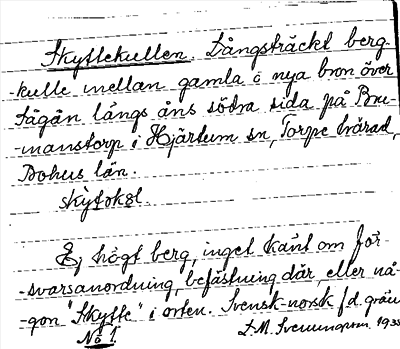 Skyttekullen. Långsträckt berg-
-kulle mellan gamla o nya bron över
längs åns södra sida på Bru-
-manstorp i Hjärtum sn, Torpe härad,
Bohus län.
skỳtək
Ej högt berg, inget känt om för-
-svarsanordning, befästning där, eller nå-
-gon "Skytte" i orten. Svensk-norsk f.d. grän
No 1.